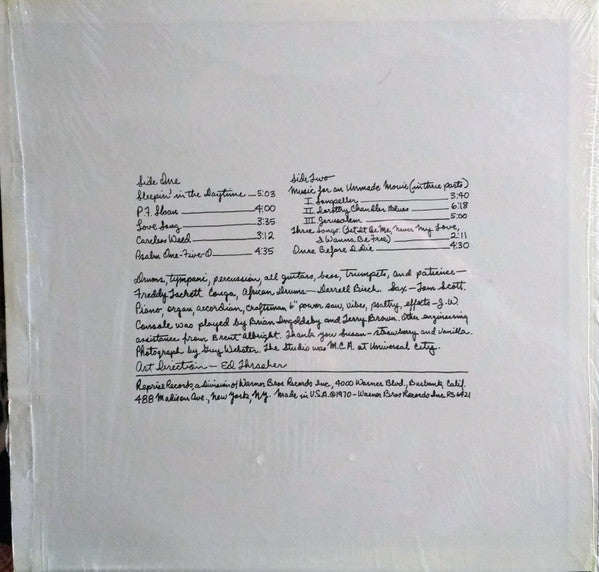 Side One
Sleepin' in the Daytime 5:03
P.F. Sloan 4:00
Love Song 3:35
Careless Weed 3:12
Psalm One-Five-O 4:35
Side Two
Music for an Unmade Movie (in three parts)
I Songseller 3:40
II Dorothy Chandler Blues 6:18
III Jerusalem 5:00
Three Songs. (Let It Be Me, Never My Love,
I Wanna Be Free) 2:11
Once Before I Die 4:30
Drums, tympani, percussion, all guitars, bass, trumpets, and patience—
Freddy Tackett. Conga, African Drums— Darrell Birch. Sax— Tom Scott.
Piano, organ, accordian, craftsman 6" power saw, vibes, poetry, efforts— J.W.
Console was played by Brian Ingoldsby and Terry Brown. Other engineering
assistance from Brent Albright. Thank you Susan— strawberry and vanilla.
Photograph by Guy Webster. The Studio was M.C.A. at Universal City.
Art Direction— Ed Thrasher
Reprise Records, a division of Warner Bros Records Inc., 4000 Warner Blvd., Burbank, Calif.
488 Madison Ave., New York, N.Y. Made in U.S.A. ℗1970— Warner Bros Records Inc. RS 6421